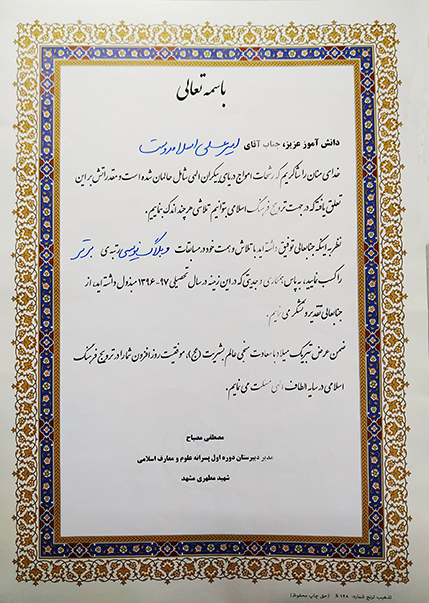 باسمه تعالی
دانش آموز عزیز، جناب آقای امیرعلی اسلامدوست
خدای منان را شاکریم که رشحات امواج دریای بیکران الهی شامل حالمان شده است و مقدراتش بر این
تعلق یافته که در جهت ترویج فرهنگ اسلامی بتوانیم تلاشی هر چند اندک نماییم.
نظر به اینکه جنابعالی توفیق داشته اید با تلاش و همت خود در مسابقات وبلاگ نویسی رتبه ی برتر
را کسب نمایید، به پاس همکاری و جدیتی که در این زمینه در سال تحصیلی ۹۷-۱۳۹۶ مبذول داشته اید، از
جنابعالی تقدیر و تشکر می نمایم.
ضمن عرض تبریک میلاد با سعادت منجی عالم بشریت (عج)، موفقیت روز افزون شما را در ترویج فرهنگ
اسلامی در سایه الطاف الهی مسئلت می نمایم.
مصطفی مصباح
مدیر دبیرستان دوره اول پسرانه علوم و معارف اسلامی
شهید مطهری مشهد
تذهیب ترنج شماره: S ۱۲۸ (حق چاپ محفوظ)